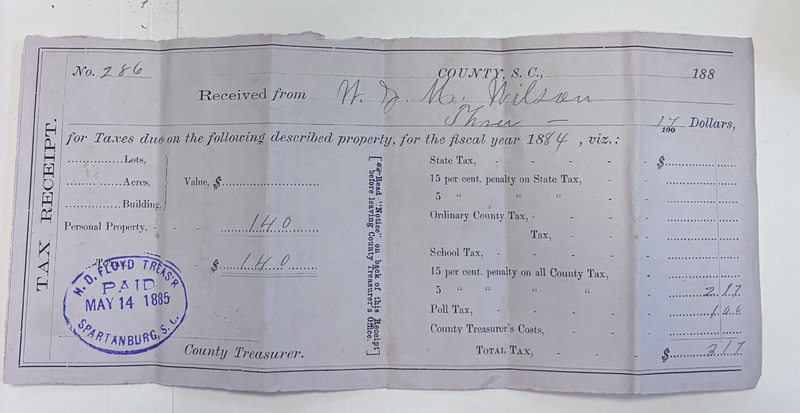 TAX RECEIPT.
No. 286 COUNTY, S. C., 188
Received from W. D. M. Wilson
Three — 17/100 Dollars,
for Taxes due on the following described property, for the fiscal year 1884, viz.:
Lots,
Acres, Value, $
Building,
Personal Property, - 140
$ 140
H. D. FLOYD TREAS'R
PAID
MAY 14 1885
SPARTANBURG, S. C.
County Treasurer.
[Read "Notice" on back of this Receipt
before leaving County Treasurer's Office.]
State Tax, - - - - - $
15 per cent. penalty on State Tax, - -
5 " " " - -
Ordinary County Tax, - - - -
Tax, - - -
School Tax, - - - - -
15 per cent. penalty on all County Tax, -
5 " " " " - 217
Poll Tax, - - - - - 100
County Treasurer's Costs, - - -
TOTAL TAX, - - - $ 317